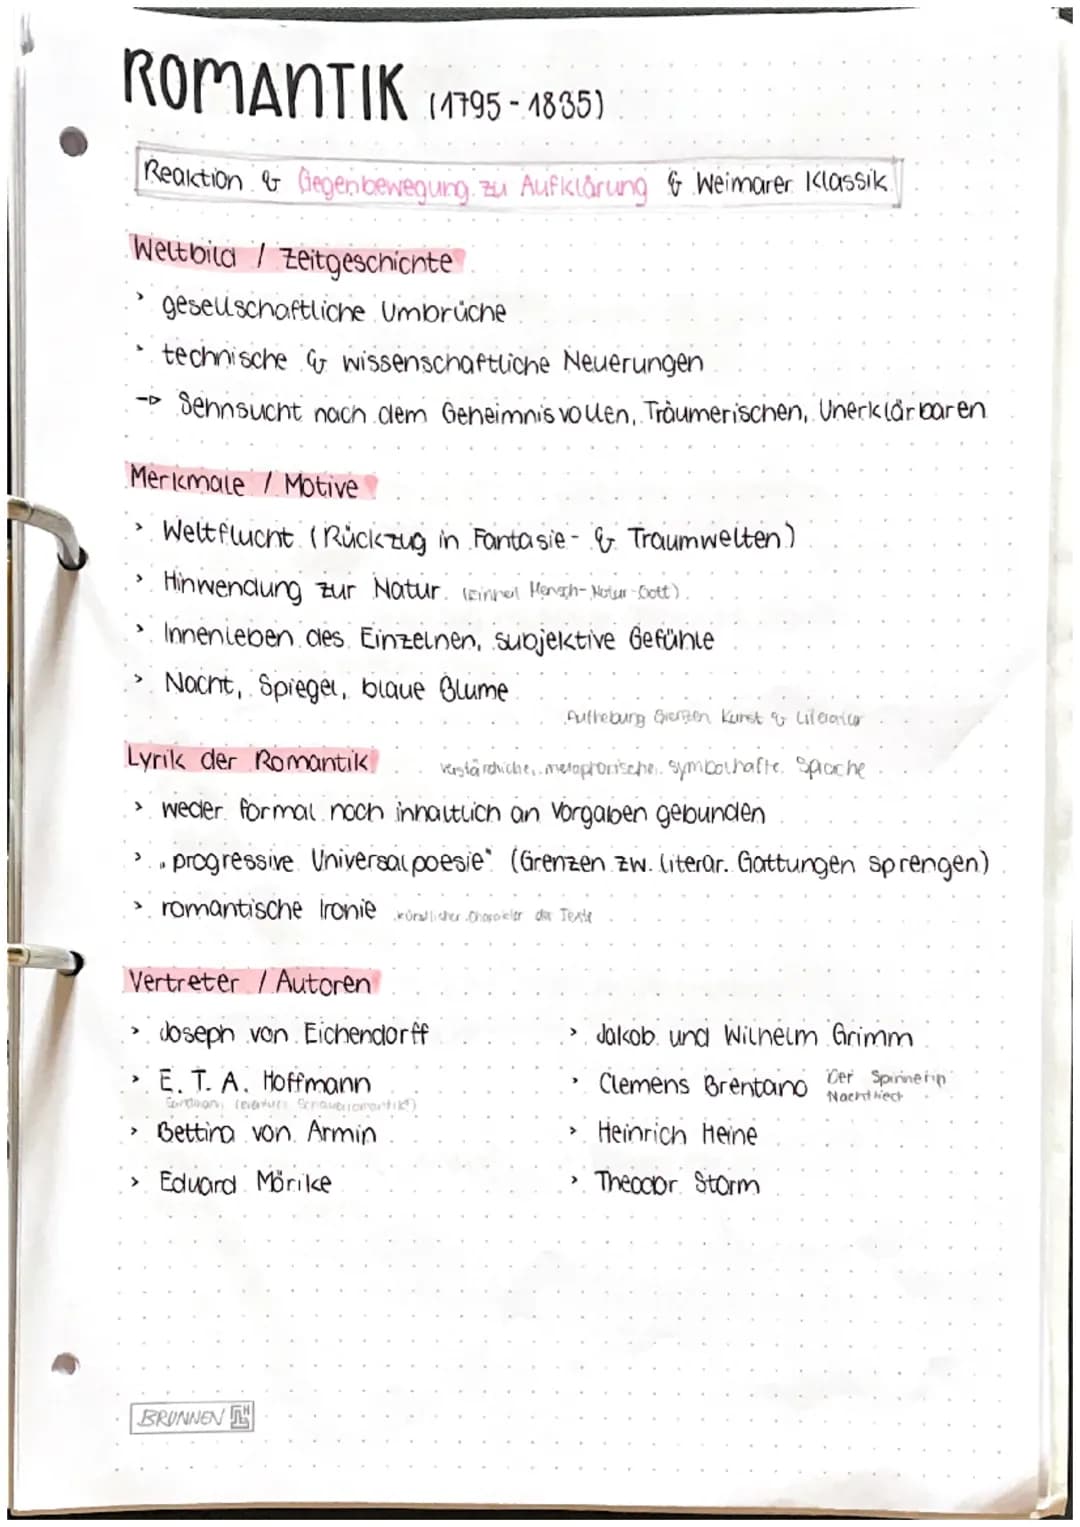 ROMANTIK (1795-1835)
Reaktion & Gegenbewegung zu Aufklärung & Weimarer Klassik
Weltbild / Zeitgeschichte
> gesellschaftliche Umbrüche
> technische & wissenschaftliche Neuerungen
→ Sehnsucht nach dem Geheimnisvollen, Träumerischen, Unerklärbaren
Merkmale / Motive
> Weltflucht (Rückzug in Fantasie- & Traumwelten)
> Hinwendung zur Natur (Einheit Mensch-Natur-Gott)
> Innenleben des Einzelnen, subjektive Gefühle
> Nacht, Spiegel, blaue Blume
Aufhebung Grenzen Kunst & Literatur
Lyrik der Romantik metaphorische, symbolhafte Sprache
> weder formal noch inhaltlich an Vorgaben gebunden
> "progressive Universalpoesie" (Grenzen zw. literar. Gattungen sprengen)
> romantische Ironie künstlicher Charakter der Texte
Vertreter / Autoren
> Joseph von Eichendorff
> E. T. A. Hoffmann
> Bettina von Armin
> Eduard Mörike
> Jakob und Wilhelm Grimm
> Clemens Brentano Der Spinnerin
Nachtlied
> Heinrich Heine
> Theodor Storm
BRUNNEN